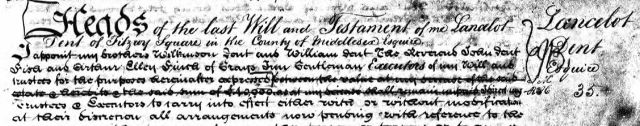 Heads of the last Will and Testament of me Lancelot
Dent of Fitzroy Square in the County of Middlesex Esquire
I appoint my brothers Wilkinson Dent and William Dent The Reverend John Dent
Fish and Gentleman Executors of my Will and
trustees for the purposes hereinafter expressed between the value at my decease of the said
estate & the said sum of at my decease shall remain
trustees & Executors to carry into effect either with or without modification
at their discretion all arrangements now pending with reference to the
Lancelot
Dent
Esquire
35.